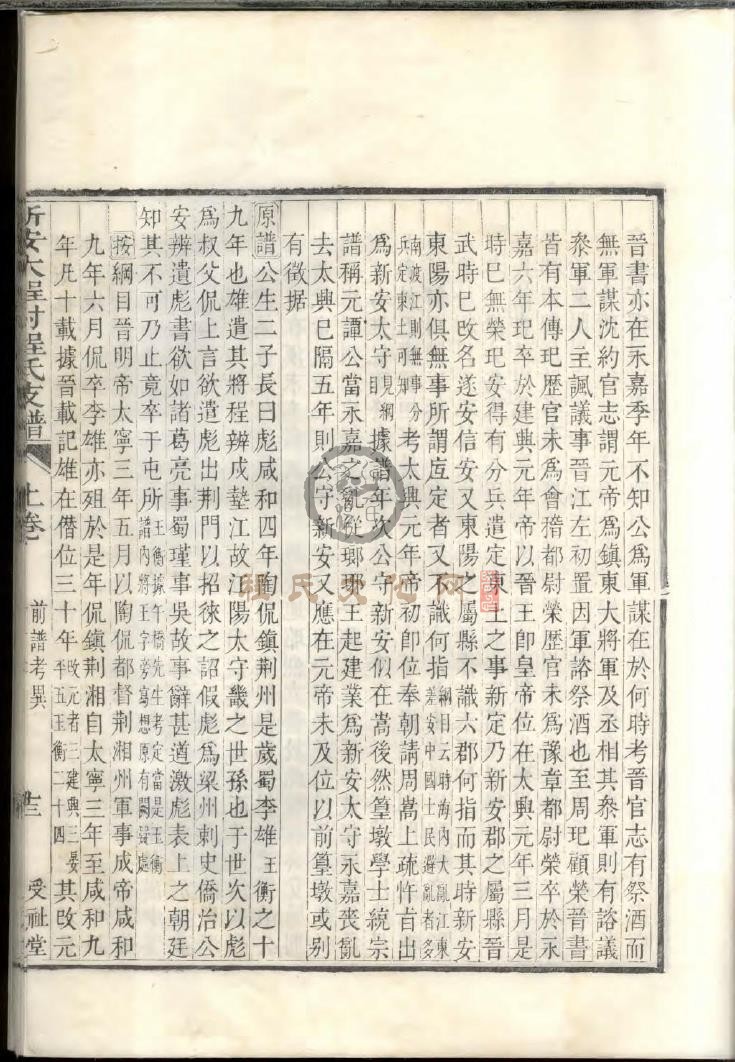 晉書亦在永嘉季年不知公爲軍謀在於何時考晉官志有祭酒而
無軍謀沈約官志謂元帝爲鎮東大將軍及丞相其叅軍則有諮議
叅軍二人主諷議事晉江左初置因軍諮祭酒也至周玘顧榮晉書
皆有本傳玘歴官未爲會稽都尉榮歴官未爲豫章都尉榮卒於永
嘉六年玘卒於建興元年帝以晉王卽皇帝位在太興元年三月是
時巳無榮玘安得有分兵遣定東土之事新定乃新安郡之屬縣晉
武時巳改名遂安信安又東陽之屬縣不識六郡何指而其時新安
東陽亦俱無事所謂㡳定者又不識何指綱目云時海內大亂江東差安中國士民避亂者多
南渡江則無事分兵定東土可知考太興元年帝初卽位奉朝請周嵩上疏忤旨出
爲新安太守見綱目據譜年次公守新安似在嵩後然篁墩學士統宗
譜稱元譚公當永嘉之亂從瑯琊王起建業爲新安太守永嘉喪亂
去太興巳隔五年則公守新安又應在元帝未及位以前篁墩或别
有徵据
原譜公生二子長曰彪咸和四年陶侃鎮荆州是歲蜀李雄王衡之十
九年也雄遣其將程辨戍墊江故江陽太守畿之世孫也于世次以彪
爲叔父侃上言欲遣彪出荆門以招徠之詔假彪爲梁州刺史僑治公
安辨遺彪書欲如諸葛亮事蜀瑾事吳故事辭甚遒激彪表上之朝廷
知其不可乃止竟卒于屯所王衡據午橋先生考定當是玉衡譜內將王字旁寫想原有闕疑處
按綱目晉明帝太寧三年五月以陶侃都督荆湘州軍事成帝咸和
九年六月侃卒李雄亦殂於是年侃鎮荆湘自太寧三年至咸和九
年凡十載據晉載記雄在僭位三十年改元者三建興三晏平五玉衡二十四其改元
新安大程村程氏支譜
上卷
前譜考異
廿三
受祉堂
程氏文化网